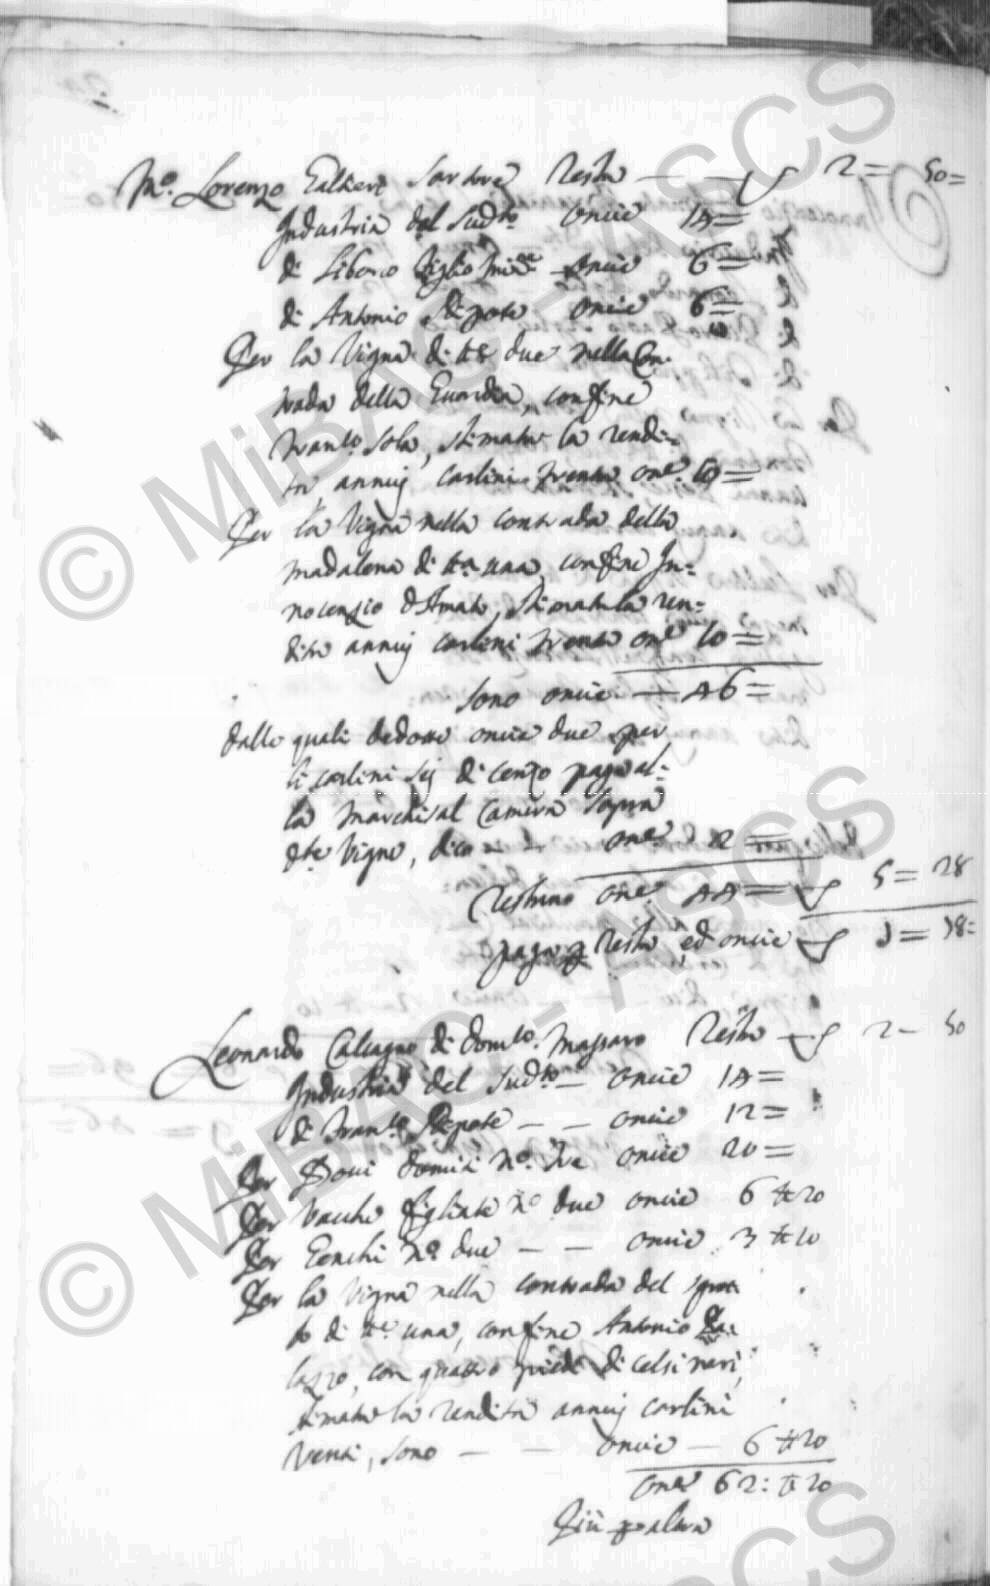 M.º Lorenzo Galtieri Sartore Testa — — 2 = 50 =
Industria del Sud.to oncie 14 =
di Liborio figlio min.e oncie 6 =
di Antonio Nipote oncie 6 =
Per la Vigna di tt.e due nella Con:
trada della Guardia, confine
Fran.co Sola, stimata la rendi:
ta annuj carlini trenta on.e 10 =
Per la Vigna nella contrada della
Madalena di tt.a una, confine In:
nocenzio d'Amato, stimata la ren:
dita annuj carlini trenta on.e 10 =
Sono oncie — 46 =
dalle quali dedotte oncie due per
li carlini sej di cenzo paga al:
la Marchisal Camera sopra
d.te Vigne, dico on.e 2 =
Restano on.e 44 = 5 = 28
paga per Testa, ed oncie 7 = 78 =
Leonardo Calcagno di Dom.co Massaro Testa — 2 — 50
Industria del Sud.to — oncie 14 =
di Fran.co Nipote — — oncie 12 =
Per Bovi domiti N.º tre oncie 20 =
Per Vacche figliate N.º due oncie 6 tt 20
Per Genchi N.º due — — oncie 3 tt 10
Per la Vigna nella contrada del
to di tt.a una, confine Antonio Pa:
lazzo, con quattro piedi di celsi neri,
stimata la rendita annuj carlini
venti, sono — — oncie — 6 tt 20
on.e 62 : tt 20
Più per altra
© MiBAC - ASCS
© MiBAC - ASCS